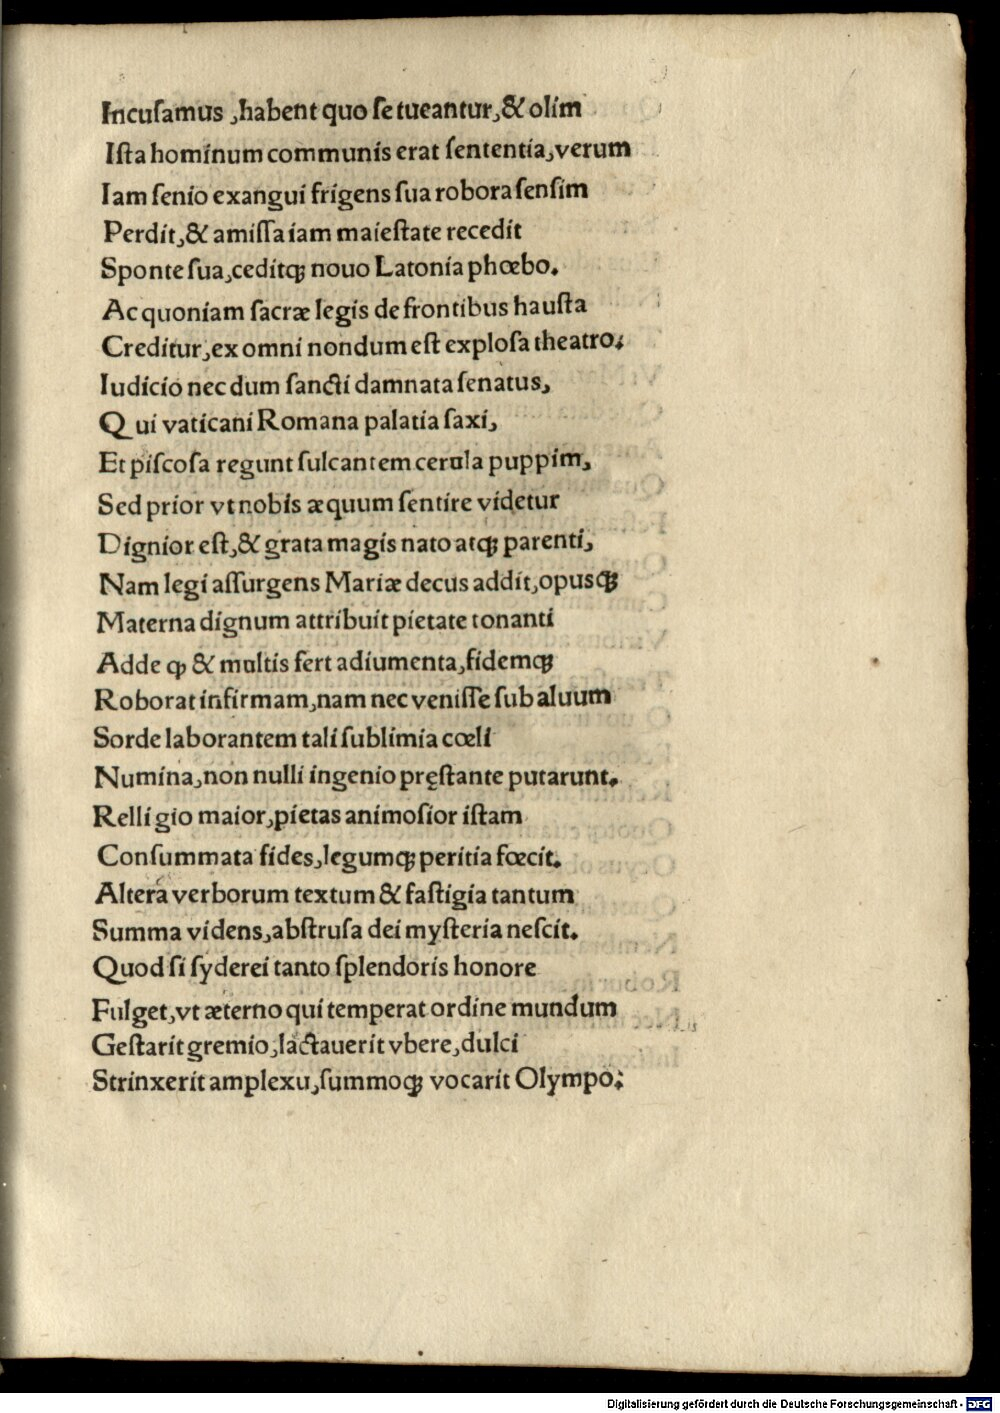 Incuſamus, habent quo ſe tueantur, & olim
Iſta hominum communis erat ſententia, verum
Iam ſenio exangui frigens ſua robora ſenſim
Perdit, & amiſſa iam maieſtate recedit
Sponte ſua, ceditqꝫ nouo Latonia phœbo.
Ac quoniam ſacræ legis de frontibus hauſta
Creditur, ex omni nondum eſt exploſa theatro.
Iudicio nec dum ſancti damnata ſenatus,
Qui vaticani Romana palatia ſaxi,
Et piſcoſa regunt ſulcantem cerula puppim,
Sed prior vt nobis æquum ſentire videtur
Dignior eſt, & grata magis nato atqꝫ parenti,
Nam legi aſſurgens Mariæ decus addit, opusqꝫ
Materna dignum attribuit pietate tonanti
Adde ꝙ & multis fert adiumenta, fidemqꝫ
Roborat infirmam, nam nec veniſſe ſub aluum
Sorde laborantem tali ſublimia cœli
Numina, non nulli ingenio pręſtante putarunt.
Relligio maior, pietas animoſior iſtam
Conſummata fides, legumqꝫ peritia fœcit.
Altera verborum textum & faſtigia tantum
Summa videns, abſtruſa dei myſteria neſcit.
Quod ſi ſyderei tanto ſplendoris honore
Fulget, vt æterno qui temperat ordine mundum
Geſtarit gremio, lactauerit vbere, dulci
Strinxerit amplexu, ſummoqꝫ vocarit Olympo.
Digitalisierung gefördert durch die Deutsche Forschungsgemeinschaft - DFG